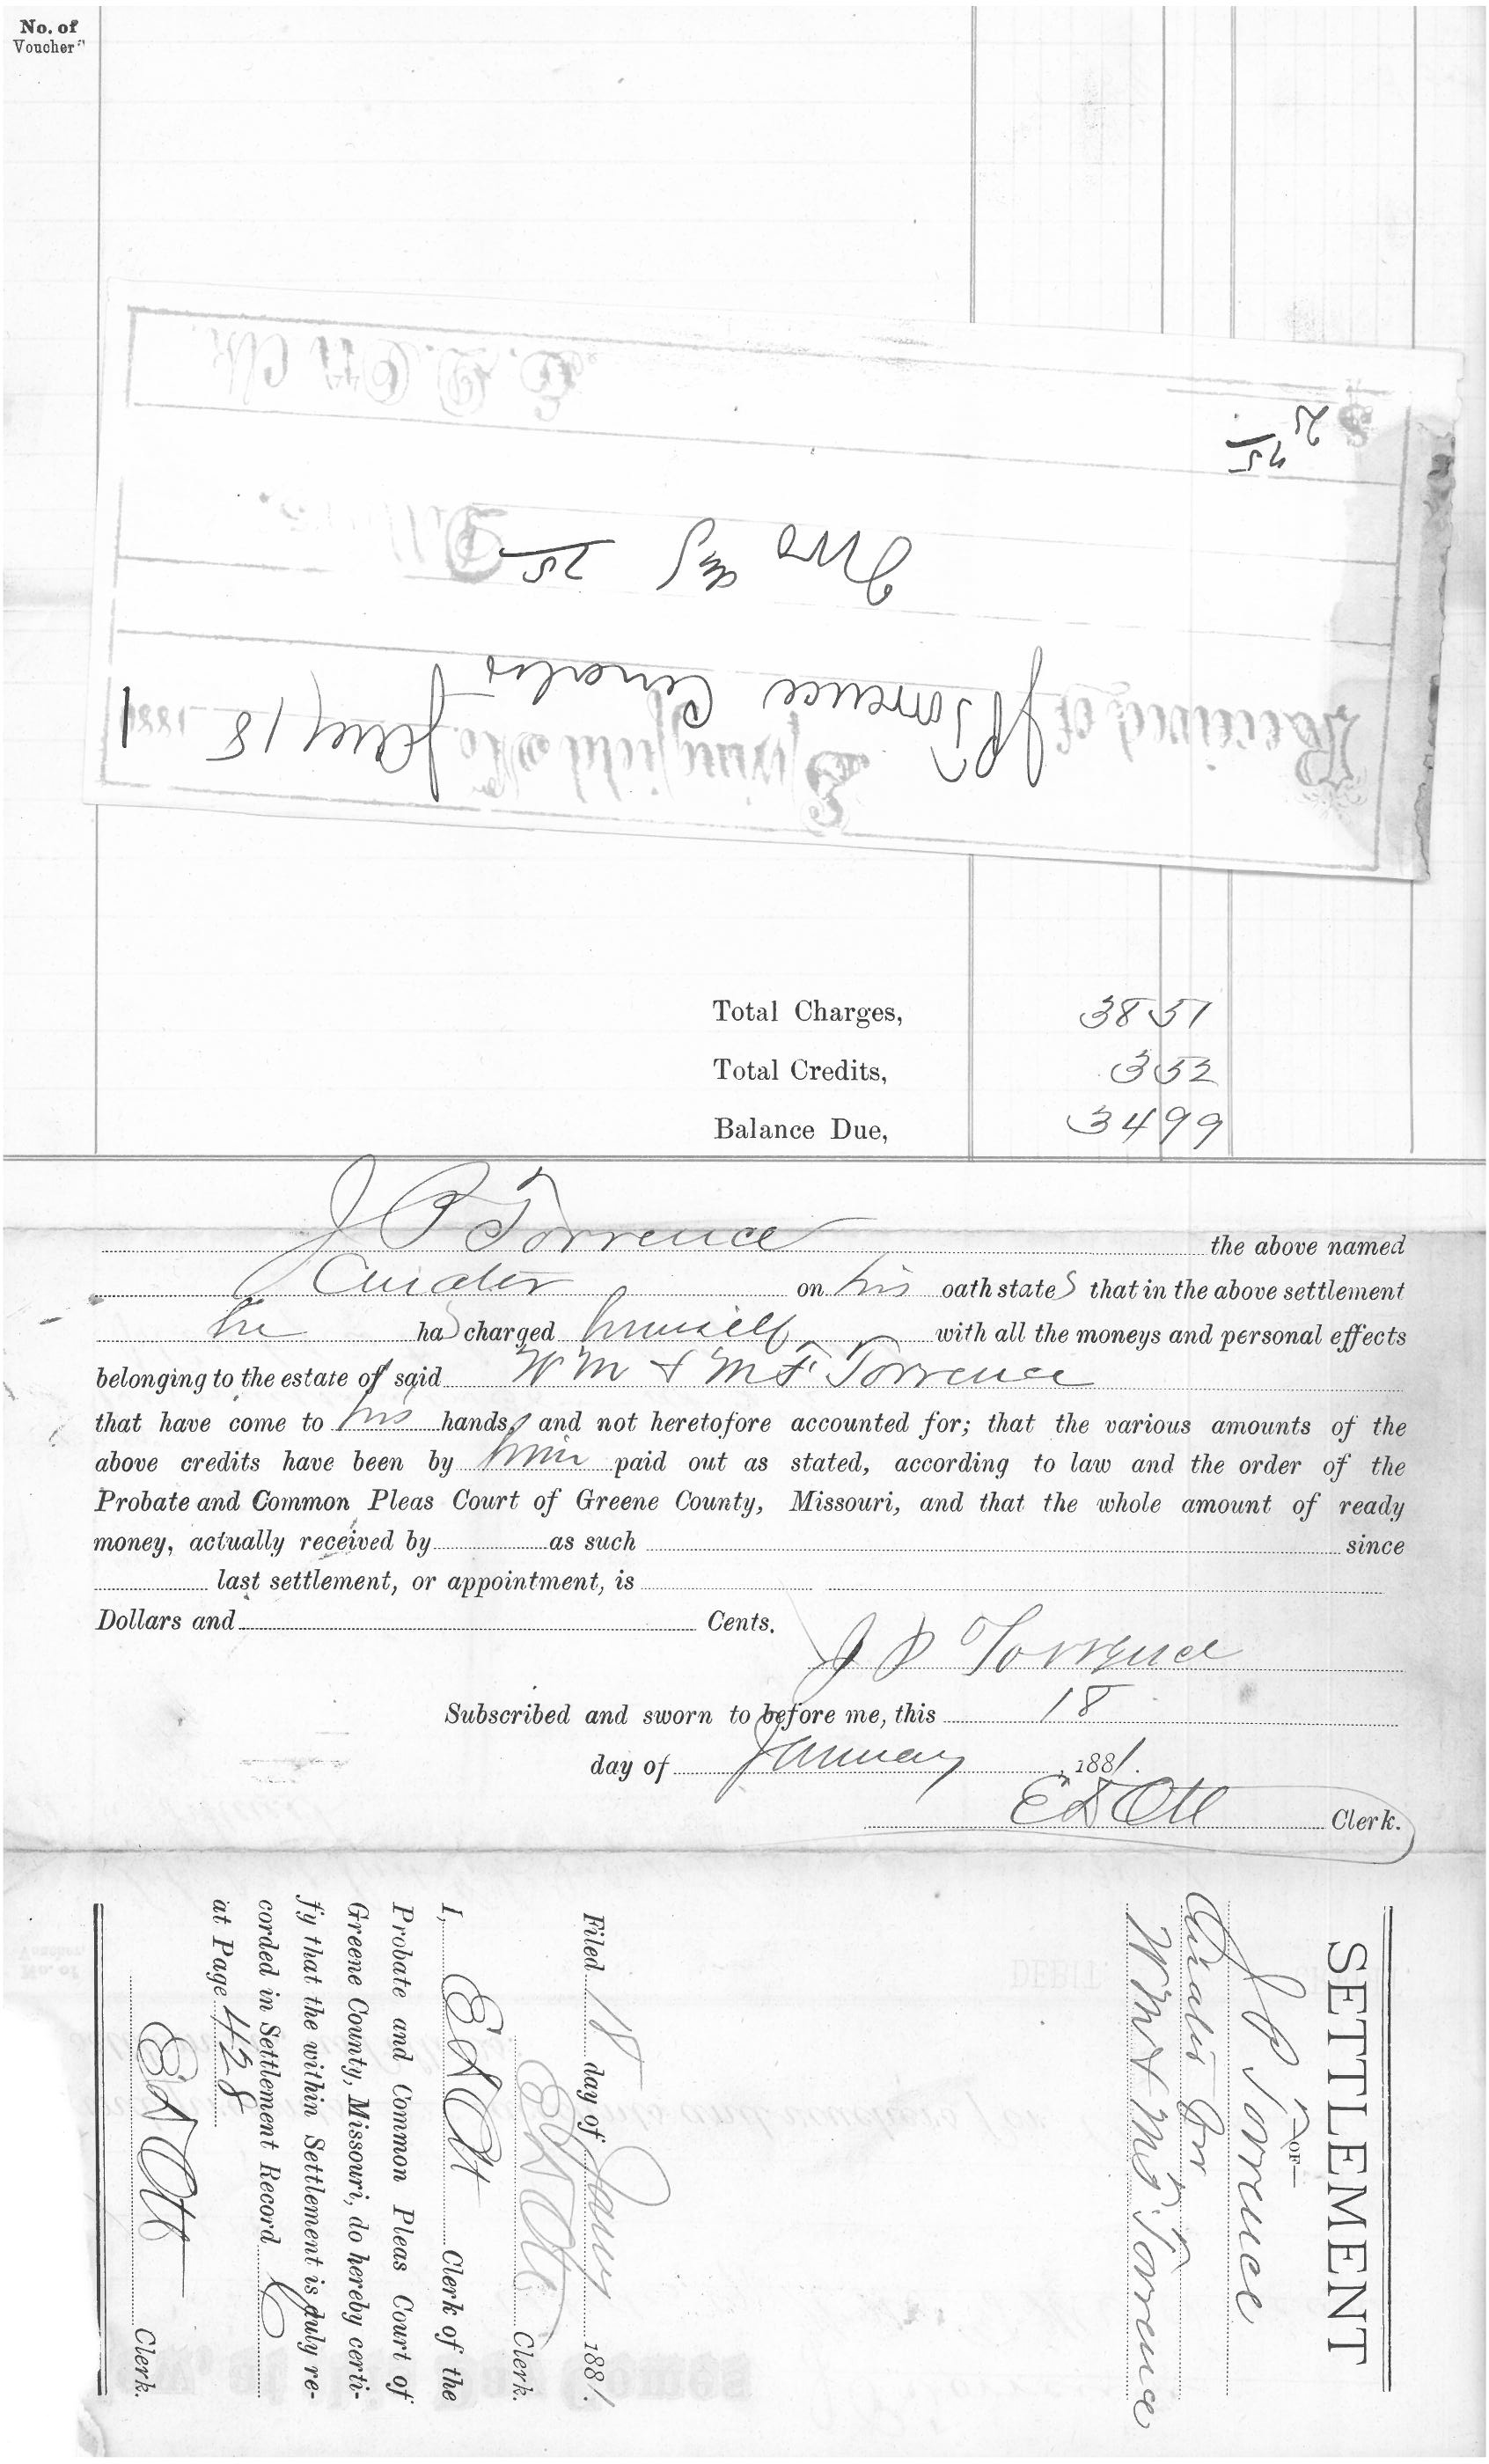 No. of
Voucher
E. D. Ott Clk.
$2 25/
Two & 25/ Dollars.
Received of J P Torrence Curator
Springfield Mo. Jany 18 1881
Total Charges, 38 51
Total Credits, 3 52
Balance Due, 34 99
J P Torrence the above named
Curator on his oath states that in the above settlement
he has charged himself with all the moneys and personal effects
belonging to the estate of said W M & M F Torrence
that have come to his hands, and not heretofore accounted for; that the various amounts of the
above credits have been by him paid out as stated, according to law and the order of the
Probate and Common Pleas Court of Greene County, Missouri, and that the whole amount of ready
money, actually received by as such since
last settlement, or appointment, is
Dollars and Cents.
J P Torrence
Subscribed and sworn to before me, this 18
day of January, 1881.
E D Ott Clerk.
SETTLEMENT
—OF—
J P Torrence
Curator for
W M & M F Torrence
Filed 18 day of Jany 1881.
E D Ott Clerk.
I, E D Ott Clerk of the
Probate and Common Pleas Court of
Greene County, Missouri, do hereby certi-
fy that the within Settlement is duly re-
corded in Settlement Record C
at Page 428
E D Ott Clerk.